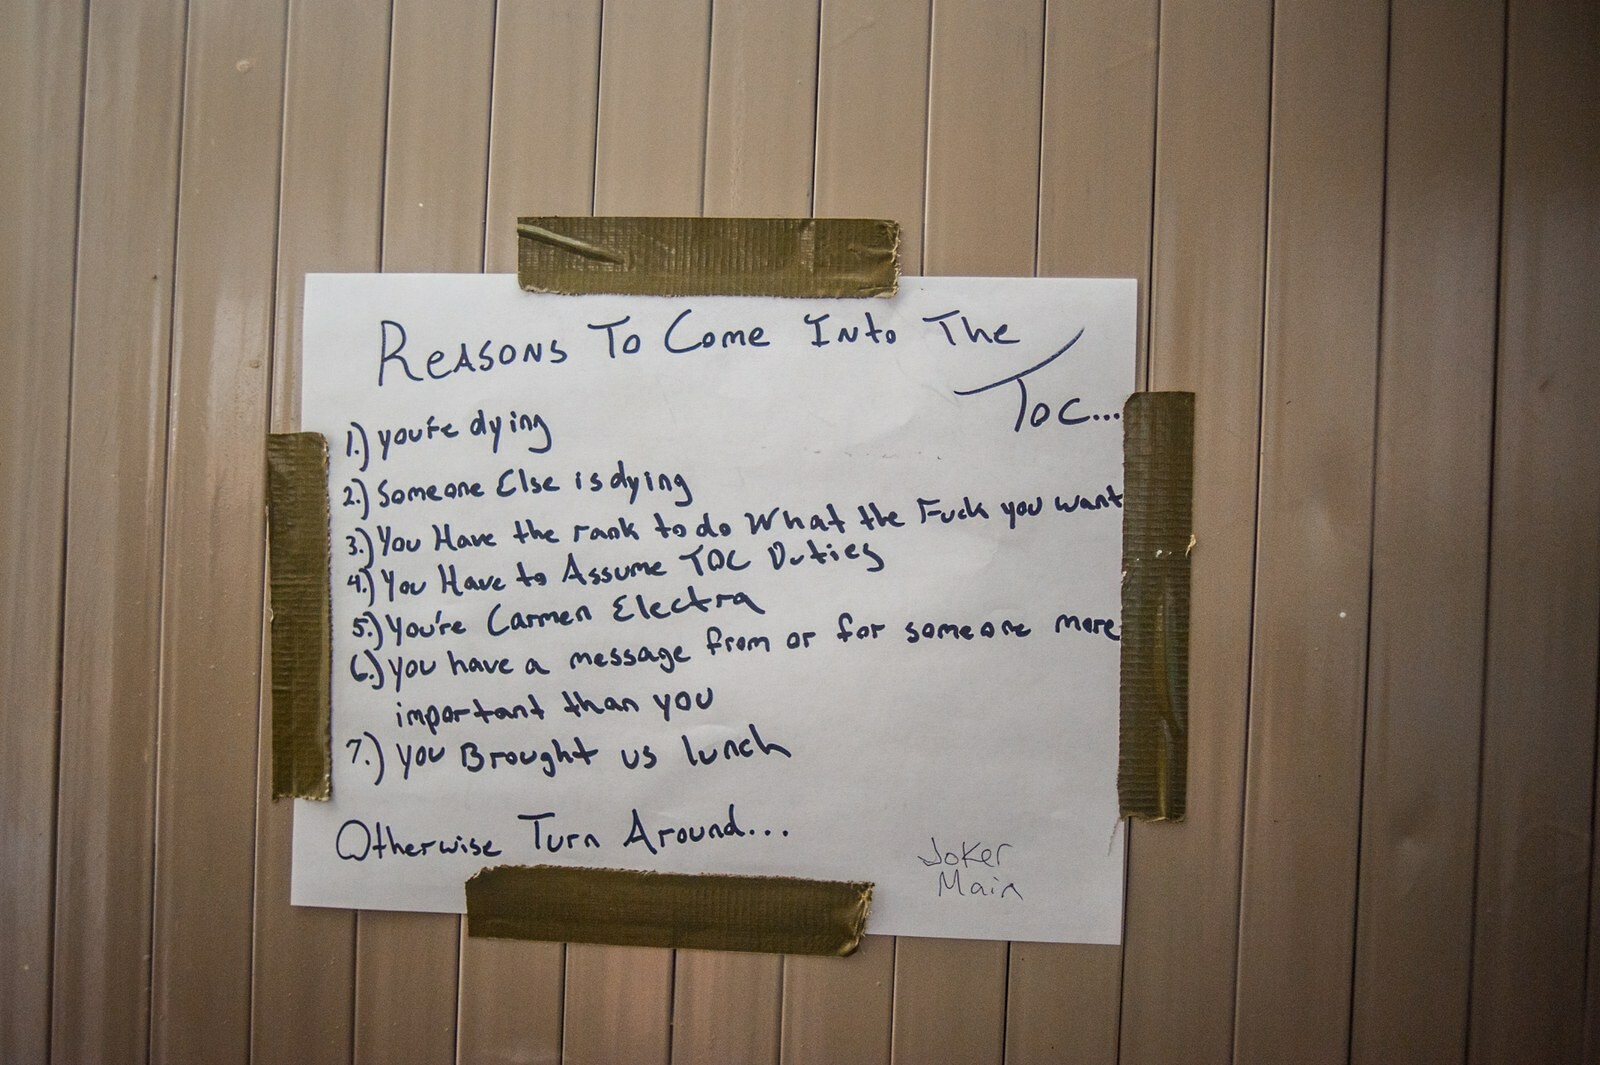 Reasons To Come Into The
Toc...
1.) you're dying
2.) Someone Else is dying
3.) You Have the rank to do What the Fuck you want
4.) You Have to Assume TOC Duties
5.) You're Carmen Electra
6.) you have a message from or for someone more
important than you
7.) you Brought us lunch
Otherwise Turn Around...
Joker
Main